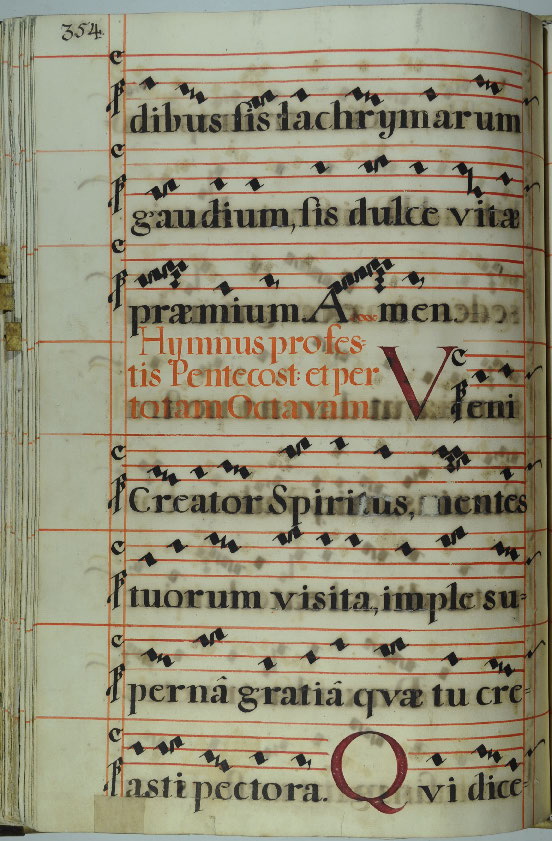 354.
dibus sis lachrymarum
gaudium, sis dulce vitæ
præmium. A... men.
Hymnus profes-
tis Pentecost: et per
totam Octavam
Veni
Creator Spiritus, mentes
tuorum visita, imple su-
pernâ gratiâ qvæ tu cre-
asti pectora. Qvi dice-